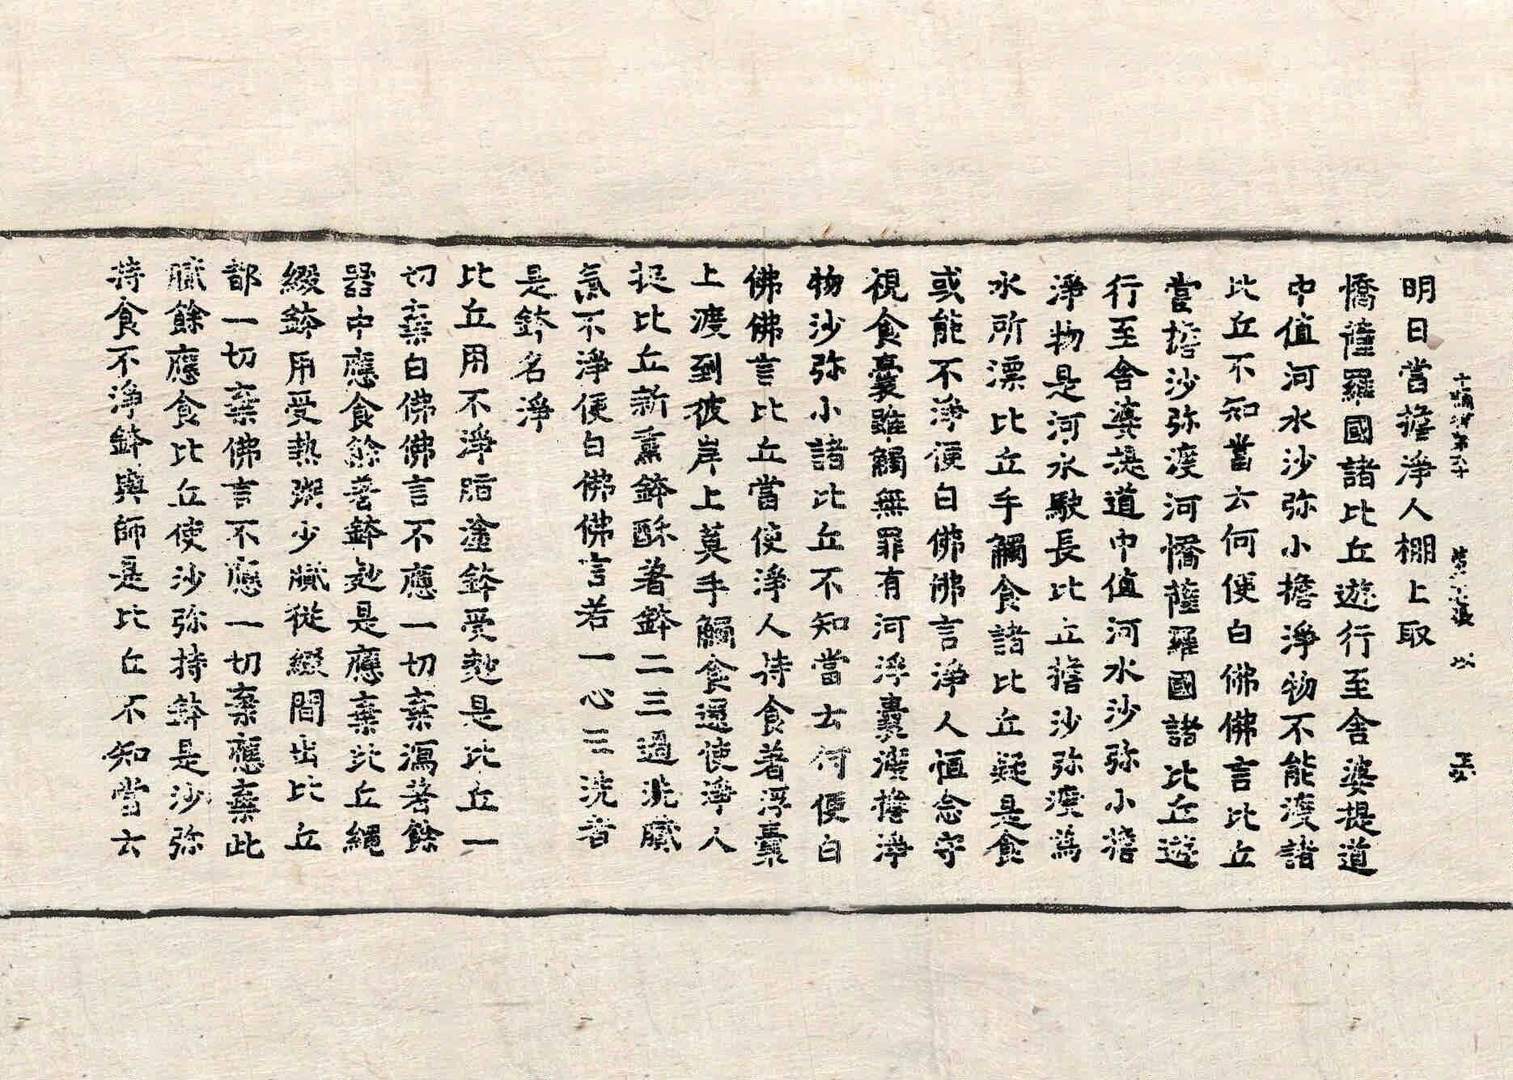 明日當擔淨人棚上取
憍薩羅國諸比丘遊行至舍婆提道
中值河水沙弥小擔淨物不能渡諸
比丘不知當云何便白佛佛言比丘
當擔沙弥渡河憍薩羅國諸比丘遊
行至舍婆提道中值河水沙弥小擔
淨物是河水駛長比丘擔沙弥渡為
水所漂比丘手觸食諸比丘疑是食
或能不淨便白佛佛言淨人恒念守
視食囊雖觸無罪有河浮囊渡擔淨
物沙弥小諸比丘不知當云何便白
佛佛言比丘當使淨人持食著浮囊
上渡到彼岸上莫手觸食還使淨人
捉比丘新熏鉢酥著鉢二三過洗膩
氣不淨便白佛佛言若一心三洗者
是鉢名淨
比丘用不淨脂塗鉢受麨是比丘一
切棄白佛佛言不應一切棄瀉著餘
器中應食餘著鉢麨是應棄比丘繩
綴鉢用受熱粥少膩從綴間出比丘
都一切棄佛言不應一切棄應棄此
膩餘應食比丘使沙弥持鉢是沙弥
持食不淨鉢與師是比丘不知當云